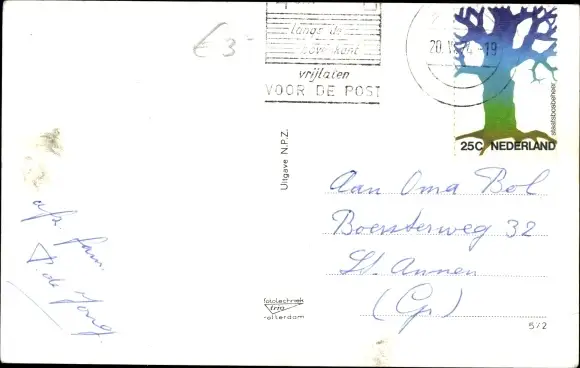 €3-
langs de
boven kant
vrijlaten
VOOR DE POST
20.
-19
staatsbosbeheer
25C NEDERLAND
Uitgave N.P.Z.
Aan Oma Bol
Boersterweg 32
St. Annen
(Gr.)
afz. fam.
P. de Jong.
fototechniek
rotterdam
572